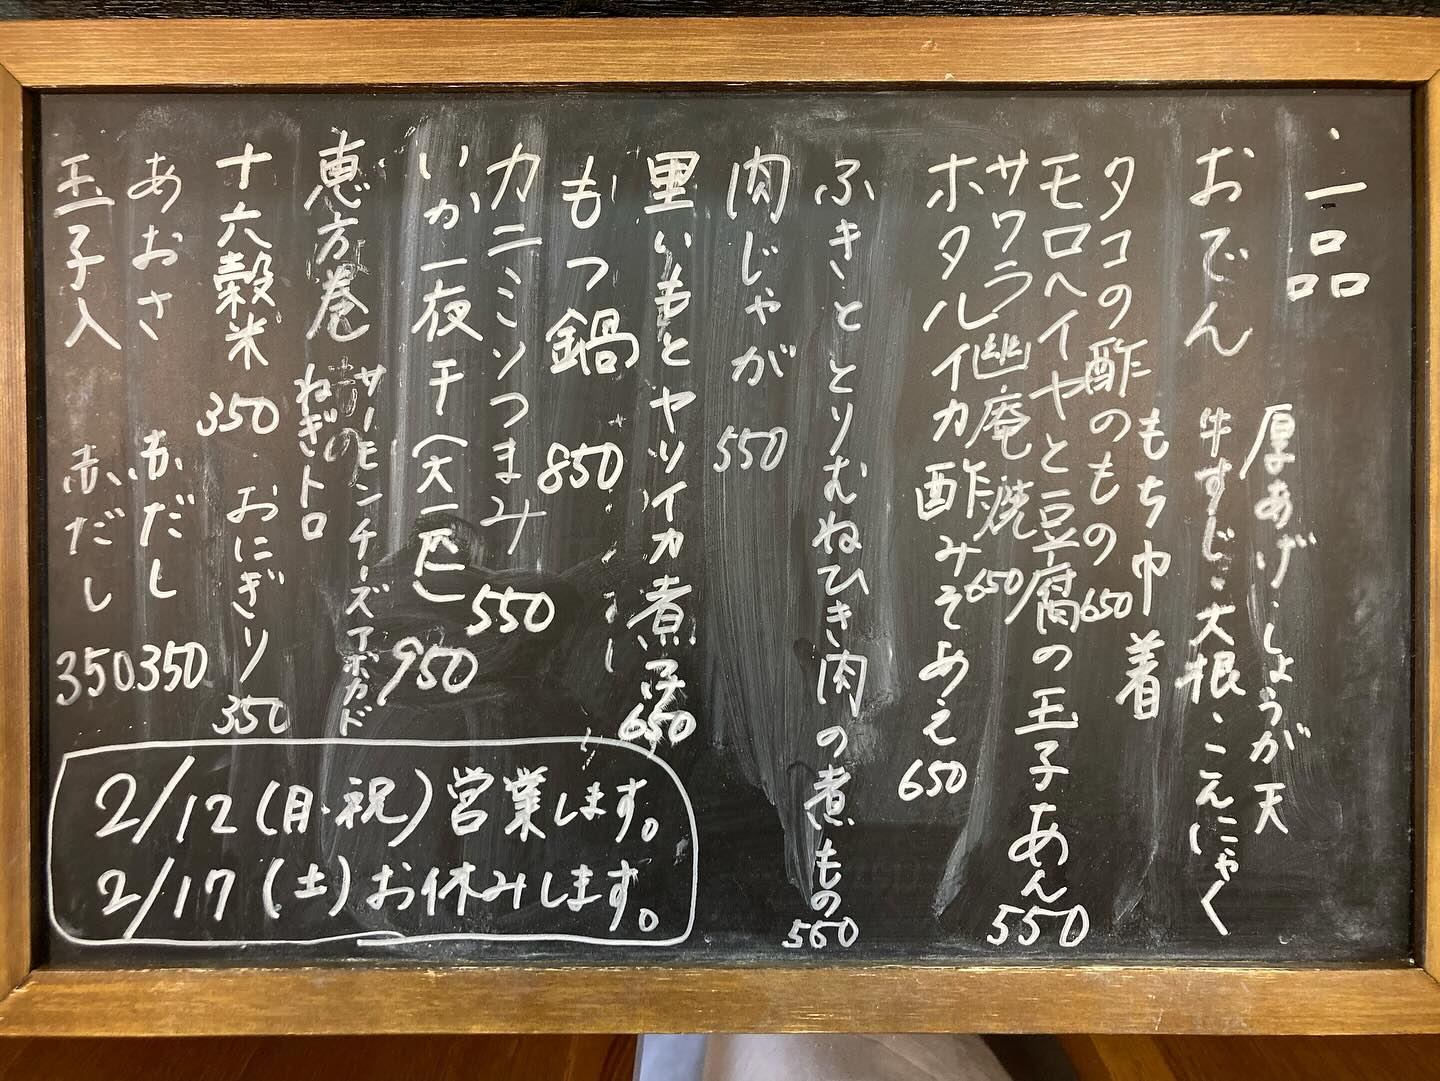 一品
おでん
厚あげ・しょうが天
牛すじ・大根・こんにゃく
もち巾着
タコの酢のもの 650
モロヘイヤと豆腐の玉子あん 550
サワラ幽庵焼 650
ホタルイカ酢みそあえ 650
ふきととりむねひき肉の煮もの 550
肉じゃが 550
里いもとヤツイカ煮 650
もつ鍋 850
カニミソつまみ 550
いか一夜干(大一匹) 950
恵方巻
サーモンチーズアボカド
ねぎトロ
十六穀米 350 おにぎり 350
あおさ 赤だし 350
玉子入 赤だし 350
2/12(月・祝)営業します。
2/17(土)お休みします。